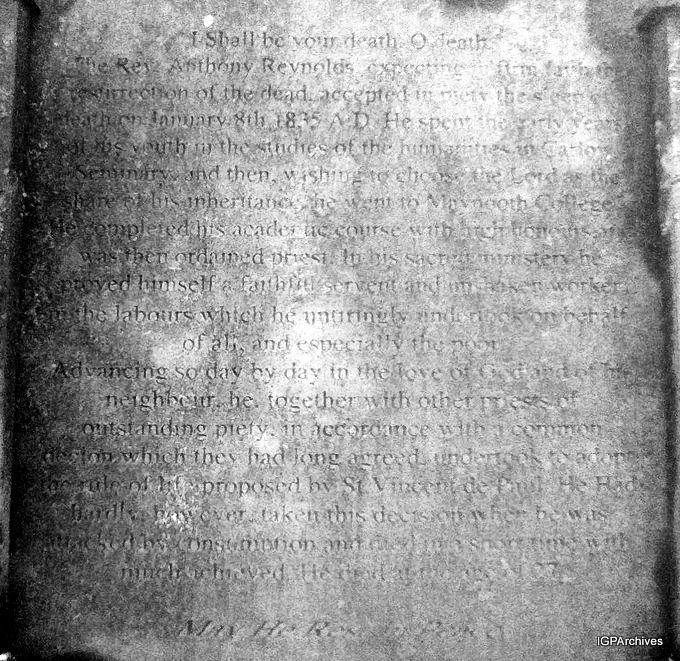 "I Shall be your death, O death."
The Rev. Anthony Reynolds, expecting in firm faith the
resurrection of the dead, accepted in piety the sleep of
death on January 8th 1835 A.D. He spent the early years
of his youth in the studies of the humanities in Carlow
Seminary, and then, wishing to choose the Lord as the
share of his inheritance, he went to Maynooth College.
He completed his academic course with high honours and
was then ordained priest. In his sacred ministery he
proved himself a faithful servent and unshaken worker
in the labours which he untiringly undertook on behalf
of all, and especially the poor.
Advancing so day by day in the love of God and of his
neighbour, he, together with other priests of
outstanding piety, in accordance with a common
which they had long agreed, undertook to adopt
the rule of life proposed by St Vincent de Paul. He Had
hardly, however, taken this decision when he was
attacked by consumption and died in a short time with
much achieved. He died at the age of
May He Rest In Peace
IGPArchives